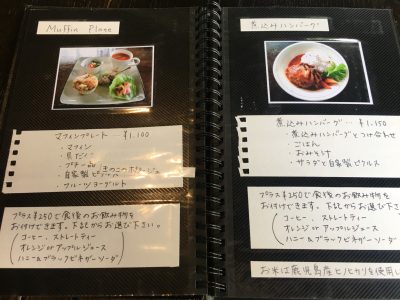 Muffin Plate
マフィンプレート… ¥1,100
・マフィン
・具だくさん
・プチ一品
きのこのポタージュ
・自家製ピクルス
・フルーツヨーグルト
プラス¥250で食後のお飲み物を
お付けできます。下記からお選び下さい。
コーヒー、ストレートティー
オレンジorアップルジュース
ハニー&ブラックビネガーソーダ
煮込みハンバーグ
煮込みハンバーグ… ¥1,150
・煮込みハンバーグとつけ合わせ
・ごはん
・おみそ汁
・サラダと自家製ピクルス
プラス¥250で食後のお飲み物を
お付けできます。下記からお選び下さい。
コーヒー、ストレートティー
オレンジorアップルジュース
ハニー&ブラックビネガーソーダ
お米は鹿児島産ヒノヒカリを使用し